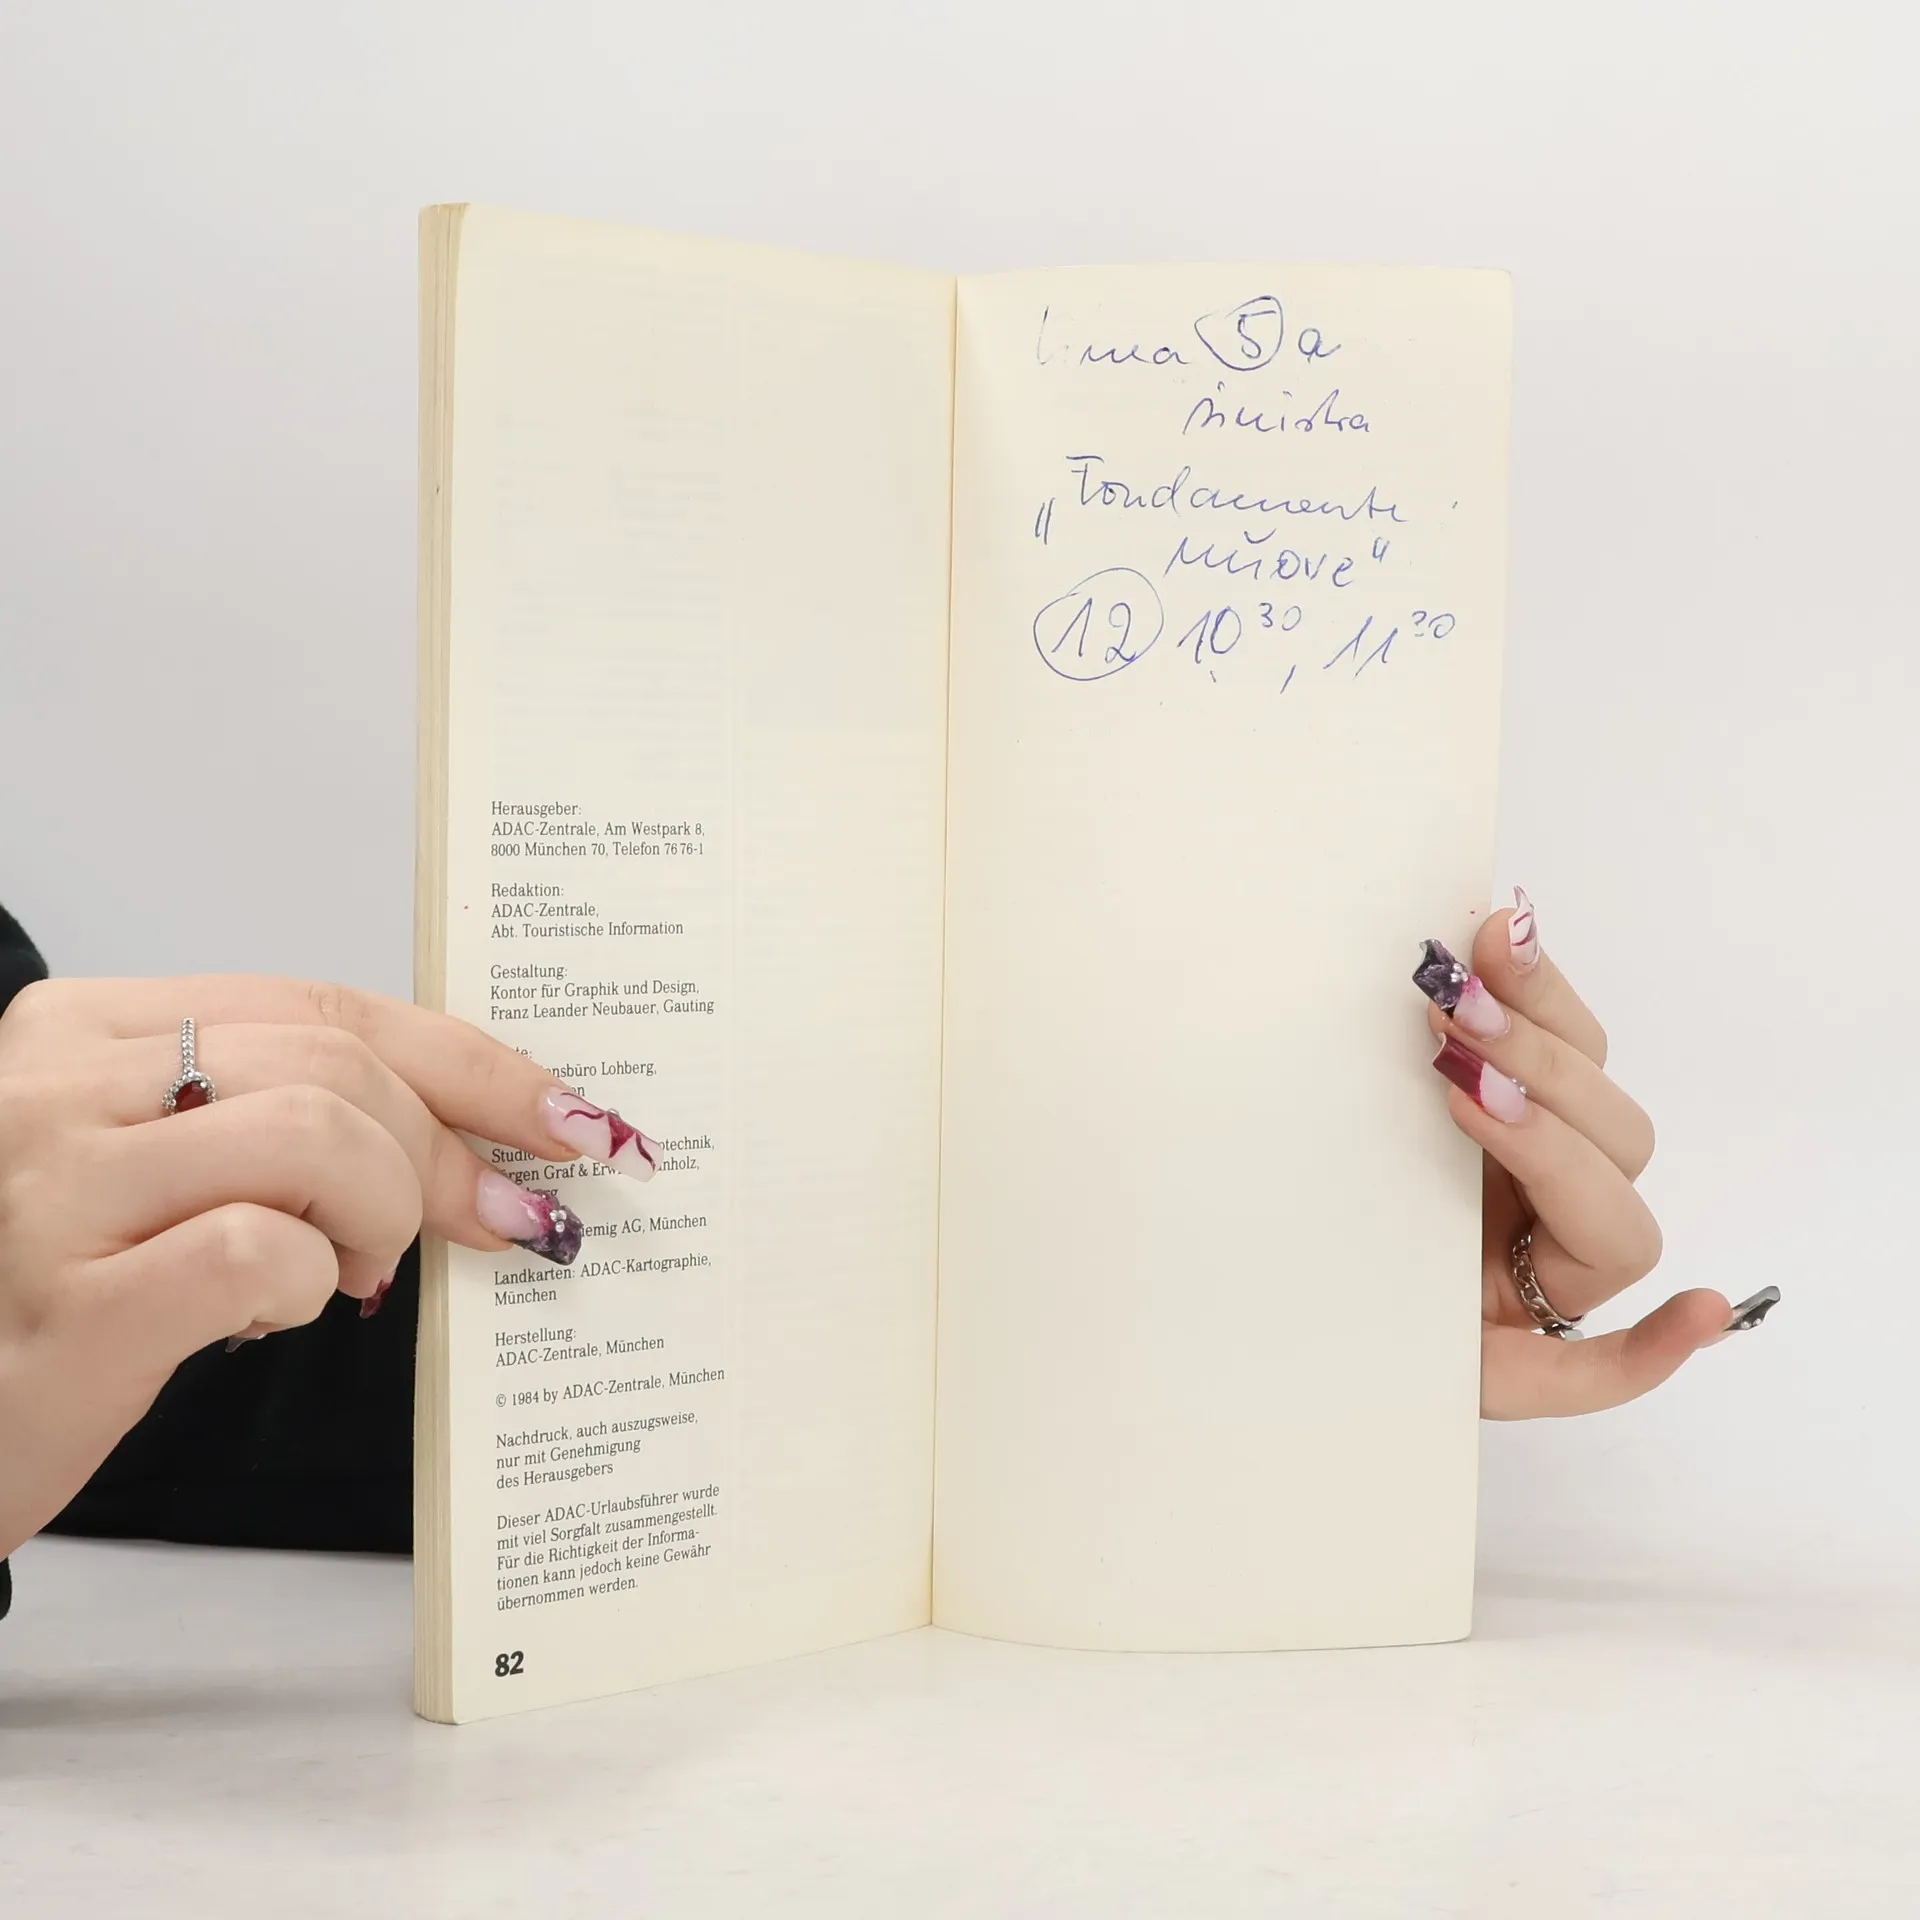 Herausgeber:
ADAC-Zentrale, Am Westpark 8,
8000 München 70, Telefon 76 76-1
Redaktion:
ADAC-Zentrale,
Abt. Touristische Information
Gestaltung:
Kontor für Graphik und Design,
Franz Leander Neubauer, Gauting
nsbüro Lohberg,
otechnik,
Studio
rgen Graf & Erw nholz,
iemig AG, München
Landkarten: ADAC-Kartographie,
München
Herstellung:
ADAC-Zentrale, München
© 1984 by ADAC-Zentrale, München
Nachdruck, auch auszugsweise,
nur mit Genehmigung
des Herausgebers
Dieser ADAC-Urlaubsführer wurde
mit viel Sorgfalt zusammengestellt.
Für die Richtigkeit der Informa-
tionen kann jedoch keine Gewähr
übernommen werden.
82
linea 5 a
sinistra
„Fondamente
nuove“
12 10³⁰, 11³⁰